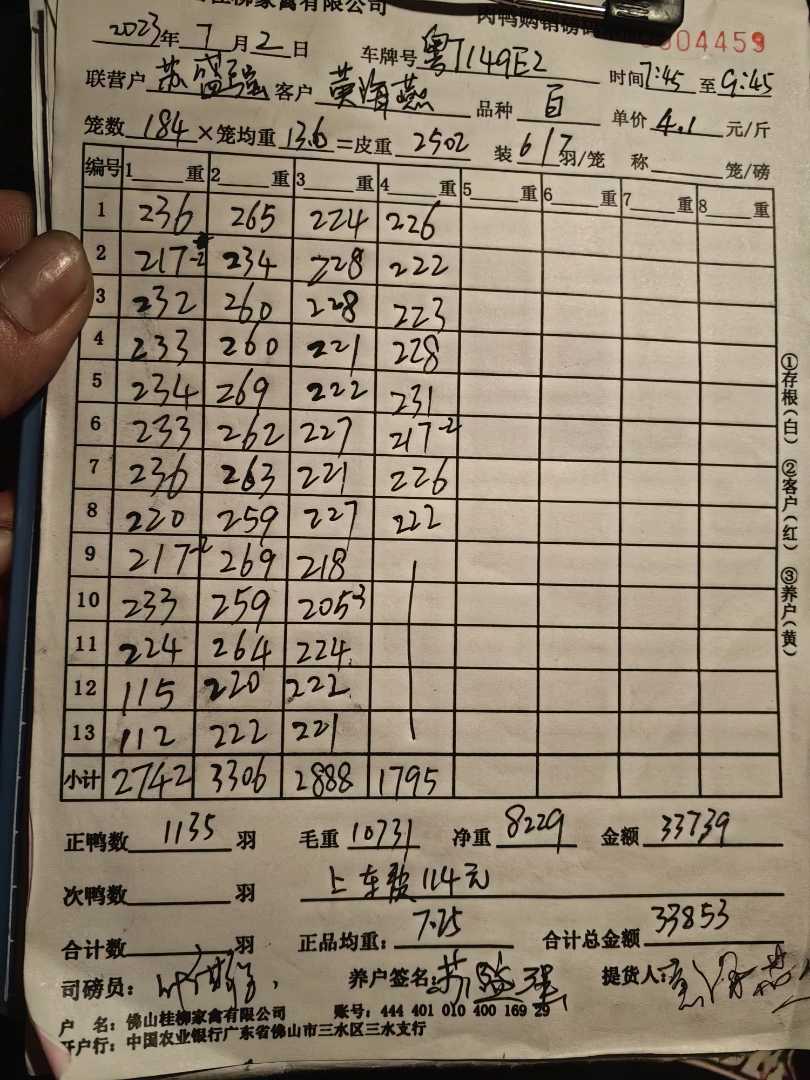 桂柳家禽有限公司 肉鸭购销磅码 0004459
2023年7月2日 车牌号 粤T149E2 时间7:45至9:45
联营户 苏盛强 客户 黄海燕 品种 白 单价 4.1 元/斤
笼数 184 ×笼均重 13.6 =皮重 2502 装 6/7 羽/笼 称 笼/磅
编号 1 重 2 重 3 重 4 重 5 重 6 重 7 重 8 重
1 236 265 224 226
2 217-2 234 228 222
3 232 260 228 223
4 233 260 221 228
5 234 269 222 231
6 233 262 227 217-2
7 236 263 221 226
8 220 259 227 222
9 217-2 269 218
10 233 259 205-3
11 224 264 224
12 115 220 222
13 112 222 221
小计 2742 3306 2888 1795
正鸭数 1135 羽 毛重 10731 净重 8229 金额 33739
次鸭数 羽 上车费114元
合计数 羽 正品均重: 7.25 合计总金额 33853
司磅员: 养户签名: 苏盛强 提货人: 黄海燕
户 名: 佛山桂柳家禽有限公司 账号: 444 401 010 400 169 29
开户行: 中国农业银行广东省佛山市三水区三水支行
①存根(白) ②客户(红) ③养户(黄)